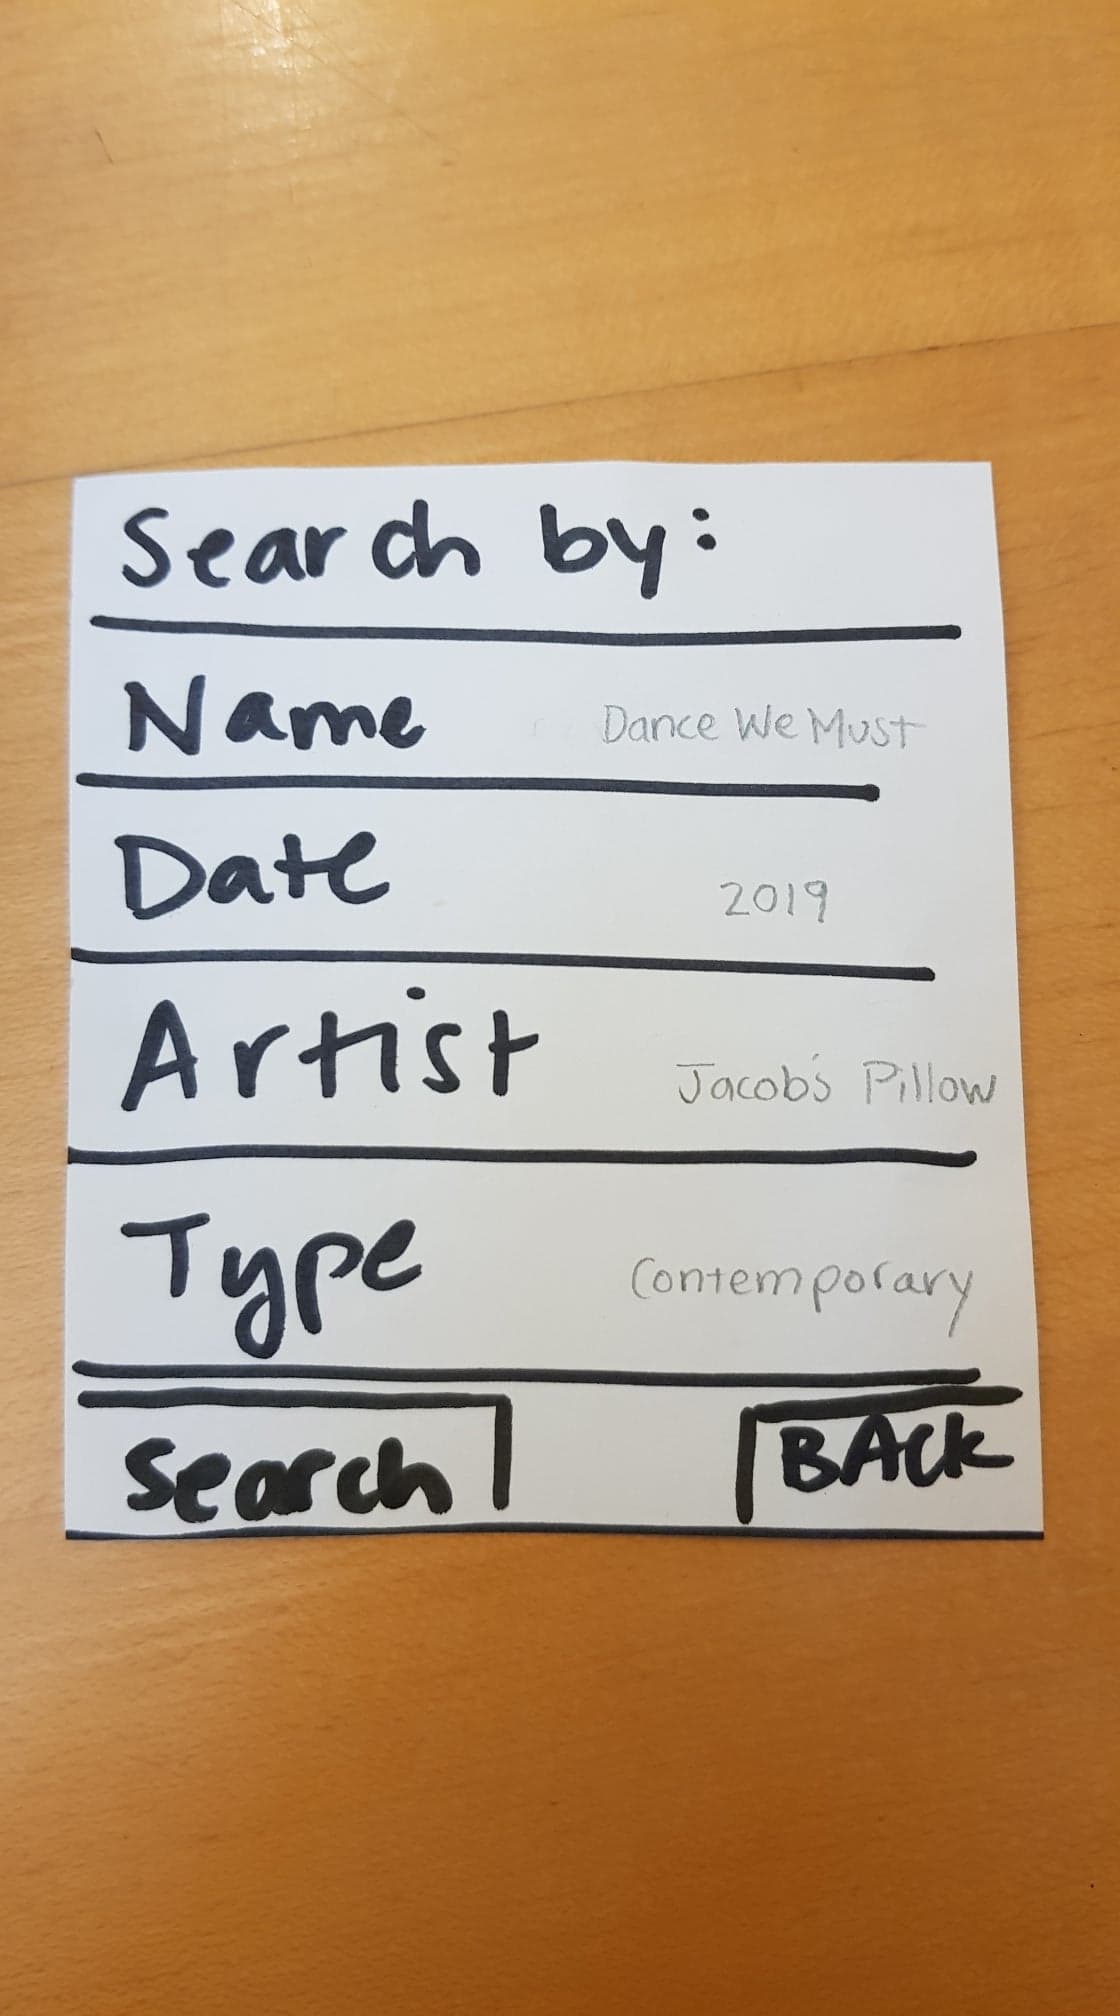 Search by:
Name Dance We Must
Date 2019
Artist Jacob's Pillow
Type Contemporary
Search BACK